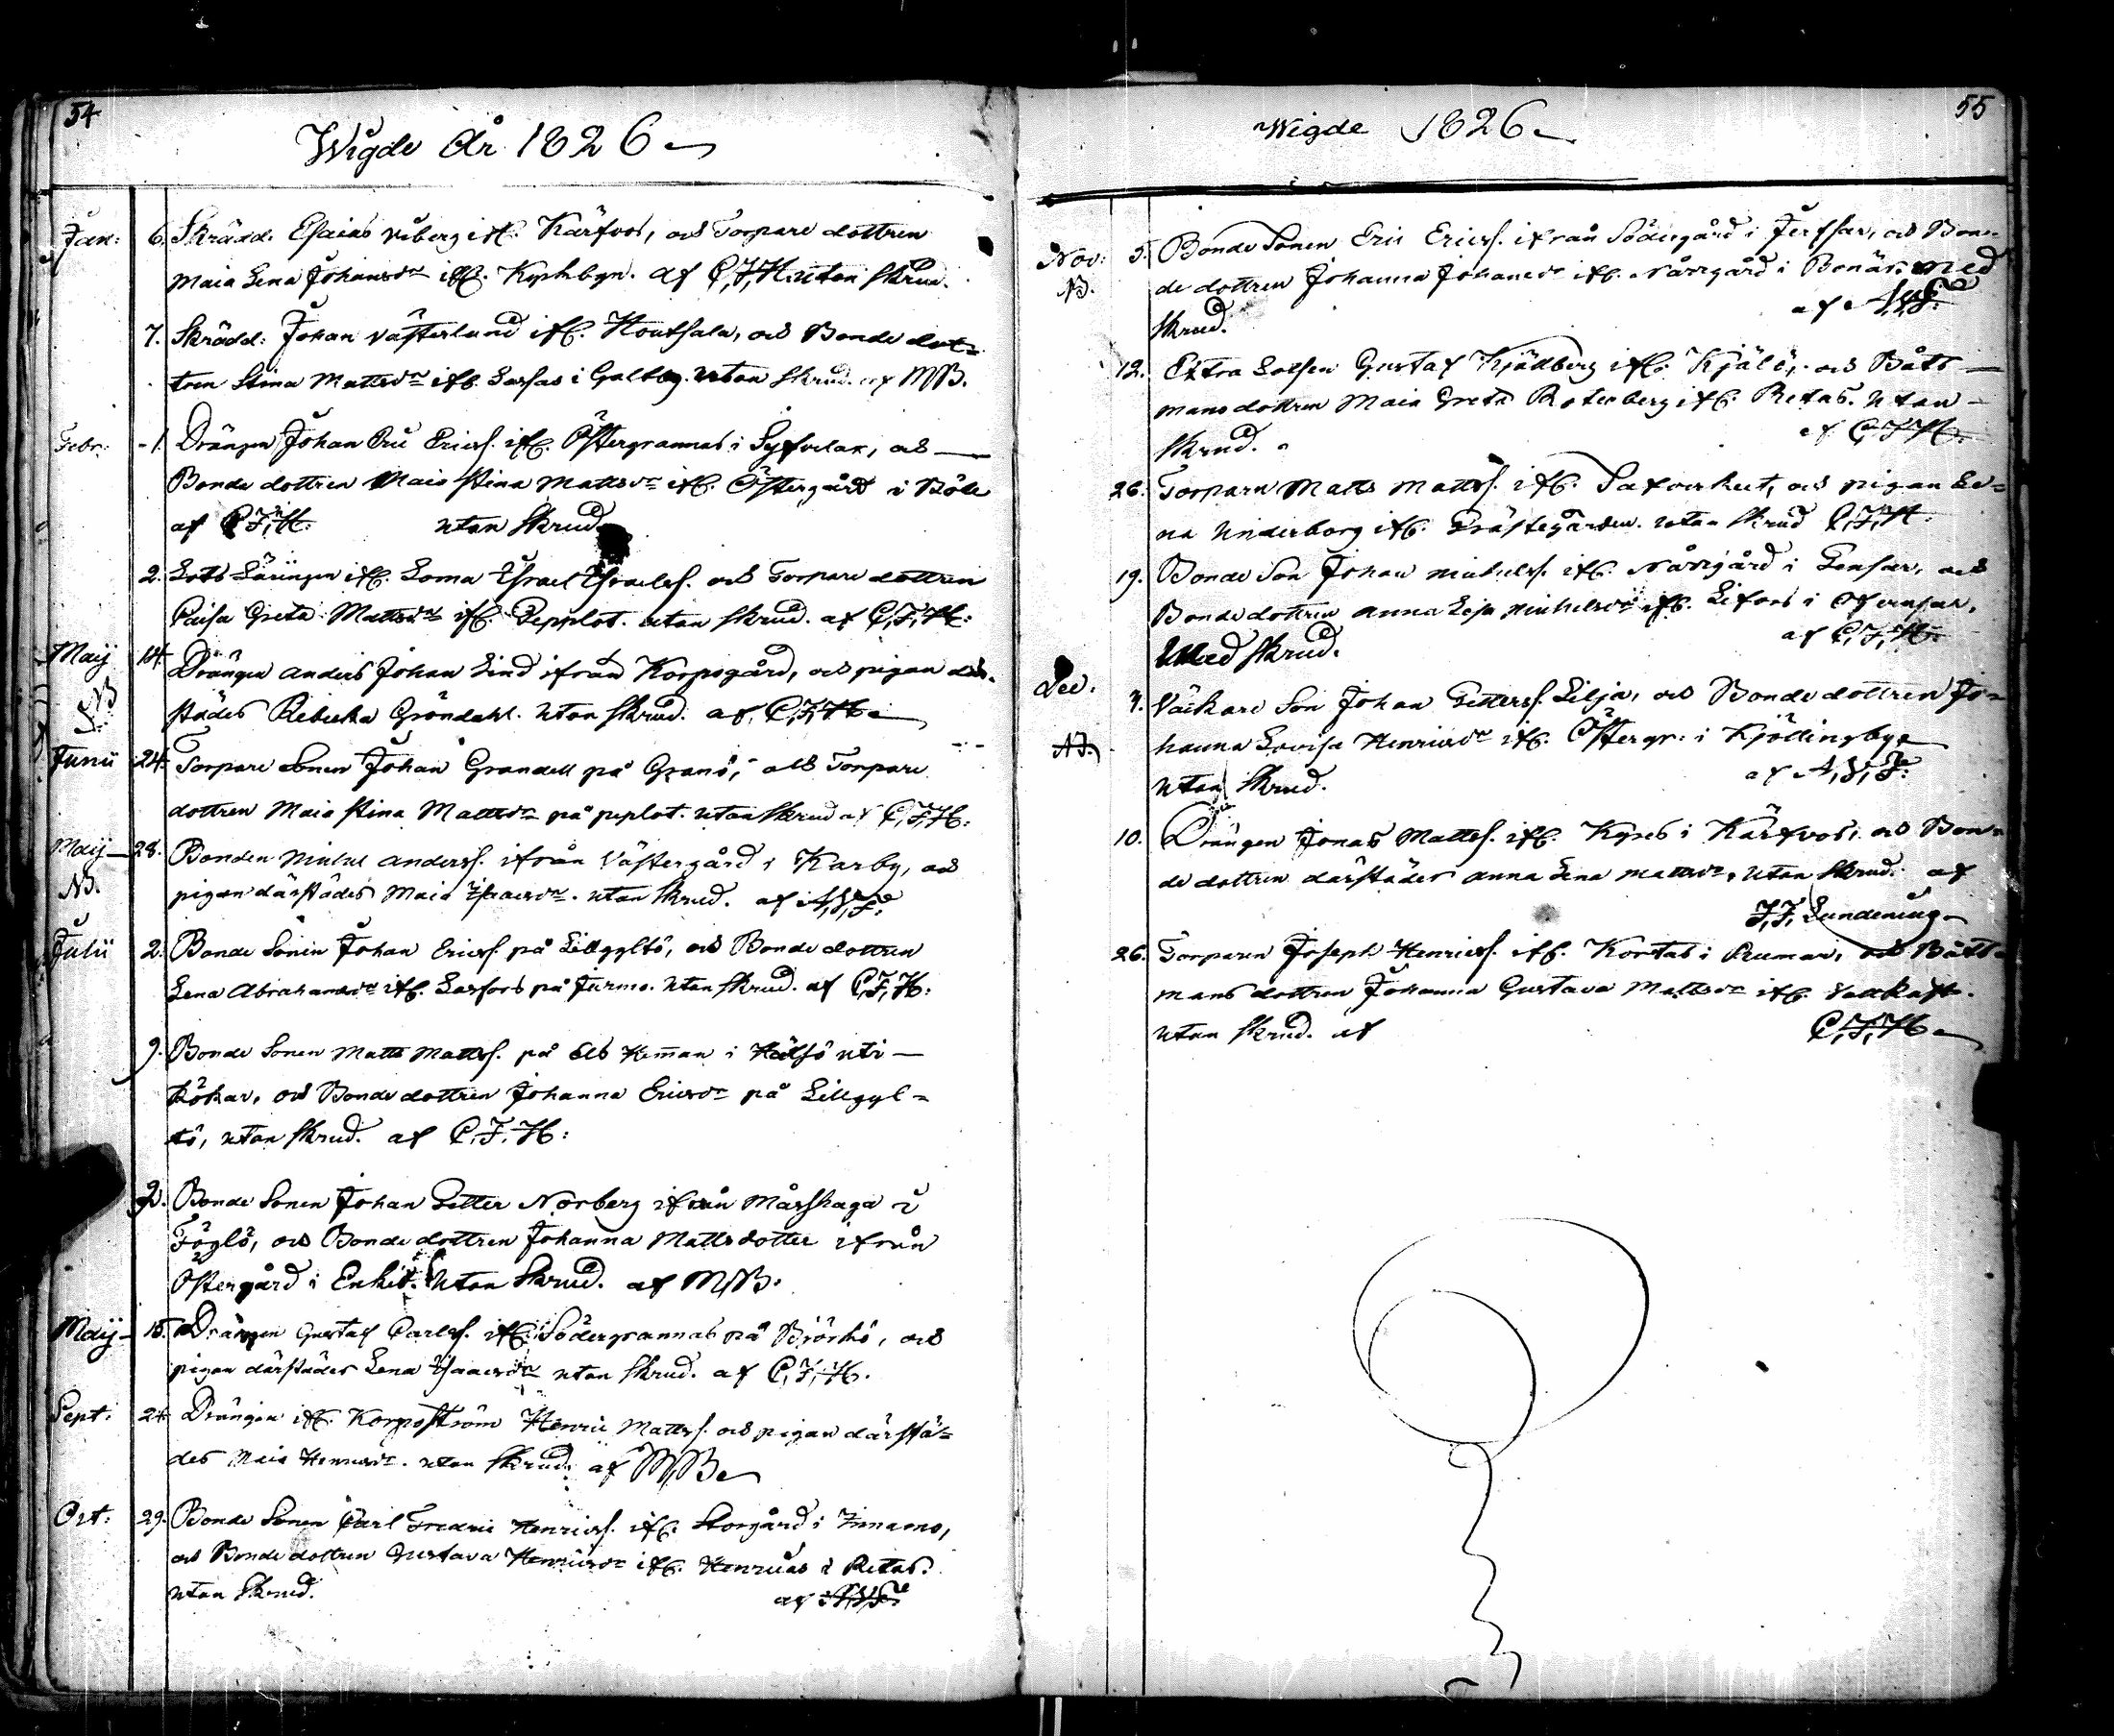 54
Wigde År 1826
Jan: 6. Skrädd. Esaias Wiberg ifr. Kärfvos, och Torpare dottren
Maia Lena Johansdr ifr. Kyrkbyn. af C,F,H. utan Skrud.
7. Skrädd: Johan Västerlund ifr. Houtsala, och Bonde dot=
tren Stina Mattsdr ifr. Lassas i Galtby. utan Skrud. af MB.
Febr: 1. Drängen Johan Eric Ericss. ifr. Östergrannas i Syfvelax, och
Bonde dottren Maia Stina Mattsdr ifr. Östergård i Böle
af C,F,H. utan Skrud.
2. Lots Läringen ifr. Loma Israel Israelss. och Torpare dottren
Caisa Greta Mattsdr ifr. Pepplot. utan Skrud. af C,F,H:
Maij 14. Drängen Anders Johan Lind ifrån Korpogård, och pigan där=
städes Rebecka Gröndahl. utan Skrud. af C,F,H.
Junii 24. Torpare Sonen Johan Grandell på Granö, och Torpare
dottren Maia Stina Mattsdr på peplot. utan Skrud af C,F,H:
Maij 28. Bonden Michel Anderss. ifrån Västergård i Karby, och
NB. pigan därstädes Maia Isaacsdr. utan Skrud. af
Julii 2. Bonde Sonen Johan Ericss. på Lillgyltö, och Bonde dottren
Lena Abrahamsdr ifr. Larsors på Jurmo. utan Skrud. af C,F,H:
9. Bonde Sonen Matts Mattss. på Hemman i uti
Kökar, och Bonde dottren Johanna Ericsdr på Lillgyl=
tö, utan Skrud. af C.F.H:
9. Bonde Sonen Johan Petter Norberg ifrån Mårskaga i
Föglö, och Bonde dottren Johanna Mattsdotter ifrån
Östergård i Enkis. utan Skrud. af MB.
Maij 15. Drängen Gustaf Carlss. ifr. Södergrannas på Björkö, och
pigan därstädes Lena Isaacsdr utan Skrud. af C,F,H.
Sept: 24. Drängen ifr. Korpoström Henric Mattss. och pigan därstä=
des Maia Henricsdr. utan Skrud. af MB
Oct: 29. Bonde Sonen Carl Fredric Henricss. ifr. Storgård i
och Bonde dottren Gustava Henricsdr ifr. Henricas i Retas.
utan Skrud. af
55
Wigde 1826
Nov: 5. Bonde Sonen Eric Ericss. ifrån Södergård i och Bon=
NB. de dottren Johanna Johansdr ifr. Norrgård i Benäs. med
Skrud. af
12. Extra Lotsen Gustaf Kjädberg ifr. och Båts
mans dottren Maia Greta Rotenberg ifr. Retas. utan
Skrud. af C,F,H.
26. Torparn Matts Mattss. ifr. och pigan Le=
na Underborg ifr. Prästegården. utan Skrud C,F,H.
19. Bonde Son Johan Michelss. ifr. Norrgård i och
Bonde dottren Anna Lisa Michelsdr ifr. i
Med Skrud. af C,F,H.
Dec. Son Johan Petterss. Lilja, och Bonde dottren Jo=
hanna Lovisa Henricsdr ifr. Östergr: i
utan Skrud. af
10. Drängen Jonas Mattss. ifr. i Kärfvos, och Bon=
de dottren därstädes Anna Lena Mattsdr, utan Skrud. af
J,F, Lundenius
26. Torparen Joseph Henricss. ifr. Kortas i Rumar, och Båts=
mans dottren Johanna Gustava Mattsdr ifr.
utan Skrud. af C,F,H